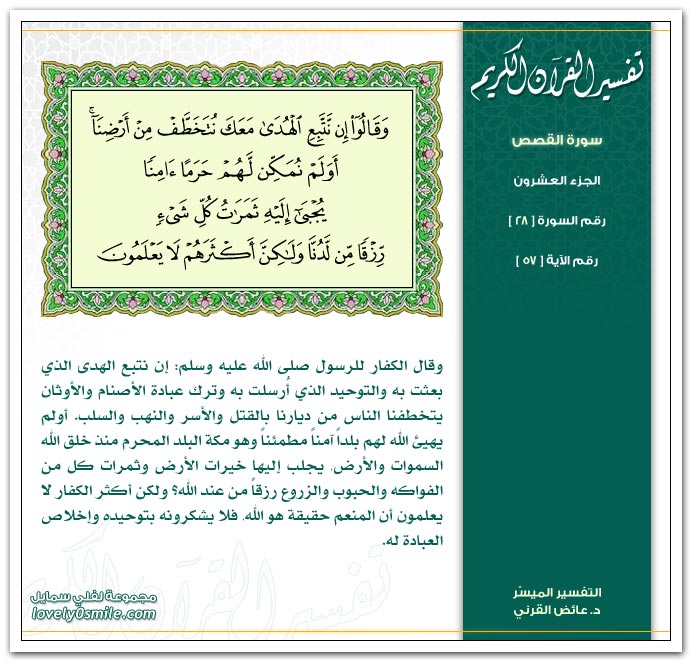 تفسير القرآن الكريم
سورة القصص
الجزء العشرون
رقم السورة [ ٢٨ ]
رقم الآية [ ٥٧ ]
وَقَالُوٓا۟ إِن نَّتَّبِعِ ٱلْهُدَىٰ مَعَكَ نُتَخَطَّفْ مِنْ أَرْضِنَآ ۚ
أَوَلَمْ نُمَكِّن لَّهُمْ حَرَمًا ءَامِنًا
يُجْبَىٰٓ إِلَيْهِ ثَمَرَٰتُ كُلِّ شَىْءٍ
رِّزْقًا مِّن لَّدُنَّا وَلَٰكِنَّ أَكْثَرَهُمْ لَا يَعْلَمُونَ
وقال الكفار للرسول صلى الله عليه وسلم: إن نتبع الهدى الذي
بعثت به والتوحيد الذي أُرسلت به وترك عبادة الأصنام والأوثان
يتخطفنا الناس من ديارنا بالقتل والأسر والنهب والسلب. أولم
يهيئ الله لهم بلداً آمناً مطمئناً وهو مكة البلد المحرم منذ خلق الله
السموات والأرض، يجلب إليها خيرات الأرض وثمرات كل من
الفواكه والحبوب والزروع رزقاً من عند الله؟ ولكن أكثر الكفار لا
يعلمون أن المنعم حقيقة هو الله، فلا يشكرونه بتوحيده وإخلاص
العبادة له.
تفسير القرآن الكريم
مجموعة لفلي سمايل
lovely0smile.com
التفسير الميسّر
د. عائض القرني